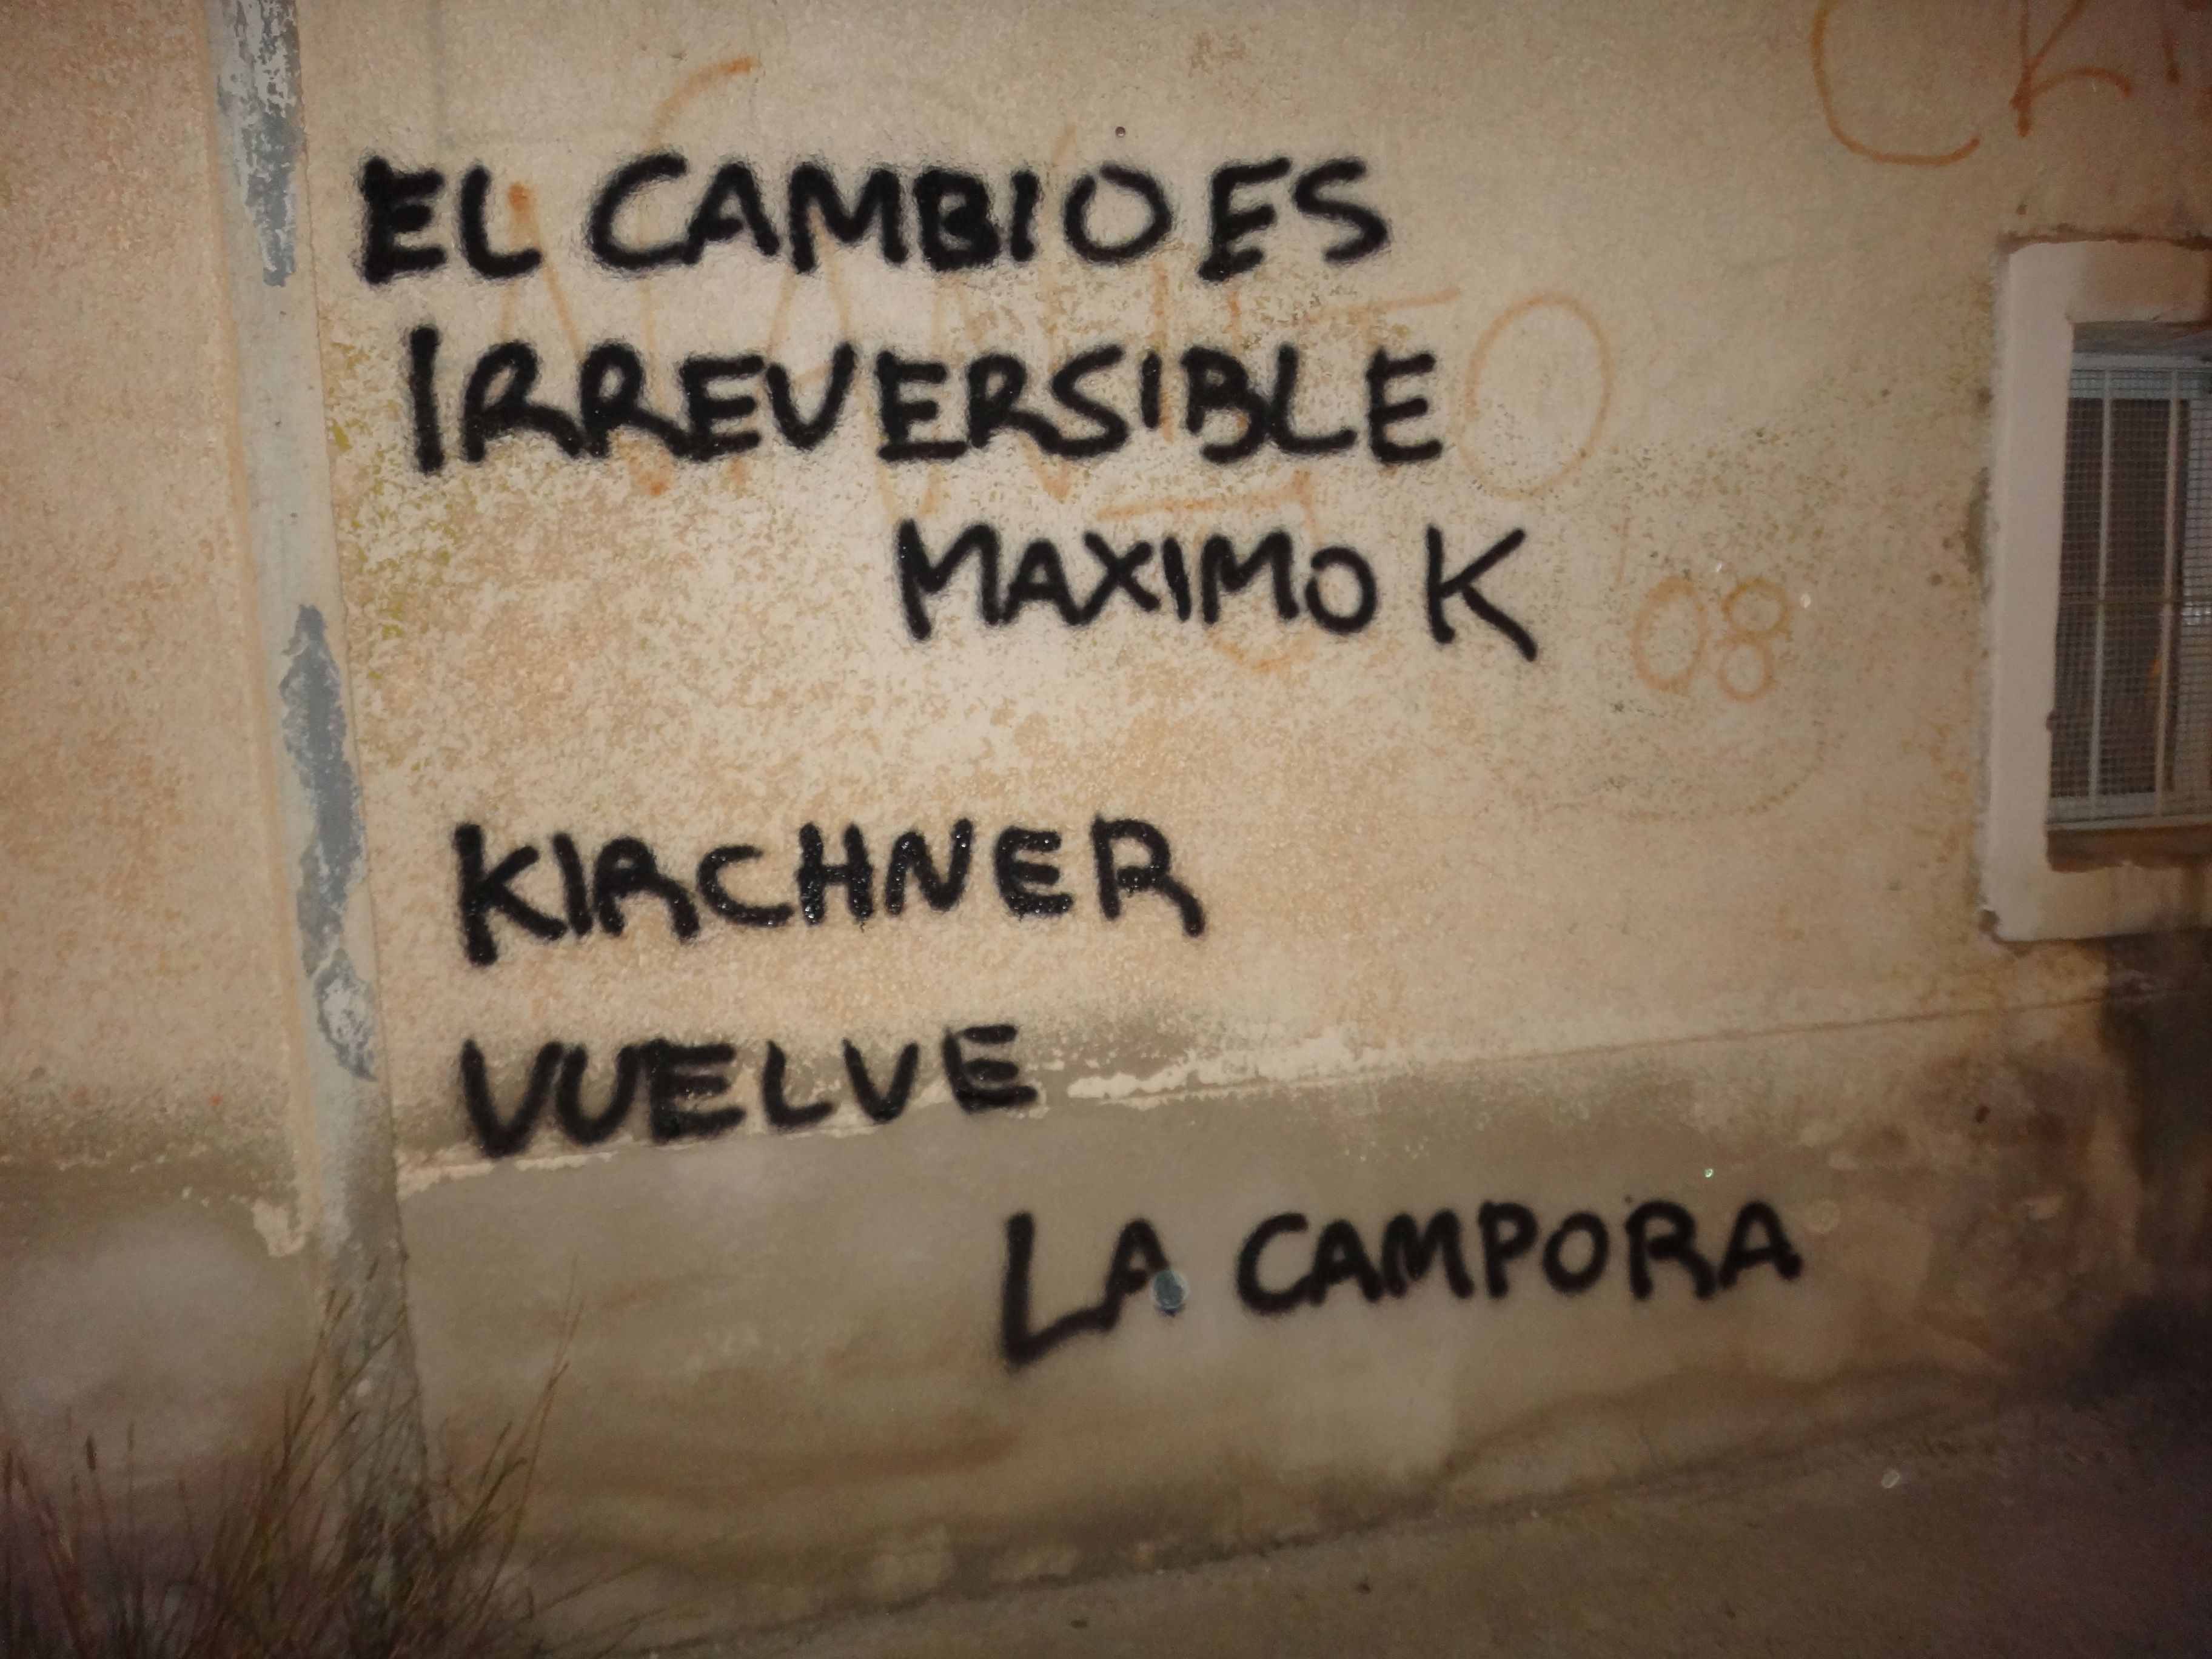 EL CAMBIO ES
IRREVERSIBLE
MAXIMO K
08
KIRCHNER
VUELVE
LA CAMPORA